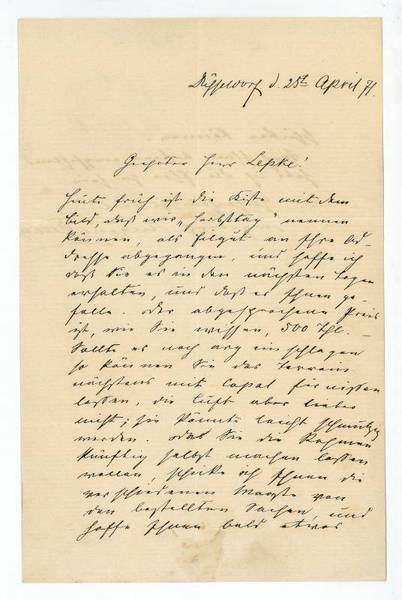 Düsseldorf d. 28t April 71.
Geehrter Herr Lepke!
Heute früh ist die Kiste mit dem
Bild, daß wir „Herbsttag" nennen
können, als Eilgut an Ihre Ad-
dresse abgegangen, und hoffe ich
daß Sie es in den nächsten Tagen
erhalten, und daß es Ihnen ge-
falle. Der abgesprochene Preis
ist, wie Sie wissen, 500 Thl. –
Sollte es noch arg einschlagen
so können Sie das Terrain
nächstens mit Copal firnissen
lassen, die Luft aber lieber
nicht; sie könnte leicht schmutzig
werden. Daß Sie die Rahmen
künftig selbst machen lassen
wollen, schicke ich Ihnen die
verschiedenen Maaße von
den bestellten Sachen, und
hoffe Ihnen bald etwas